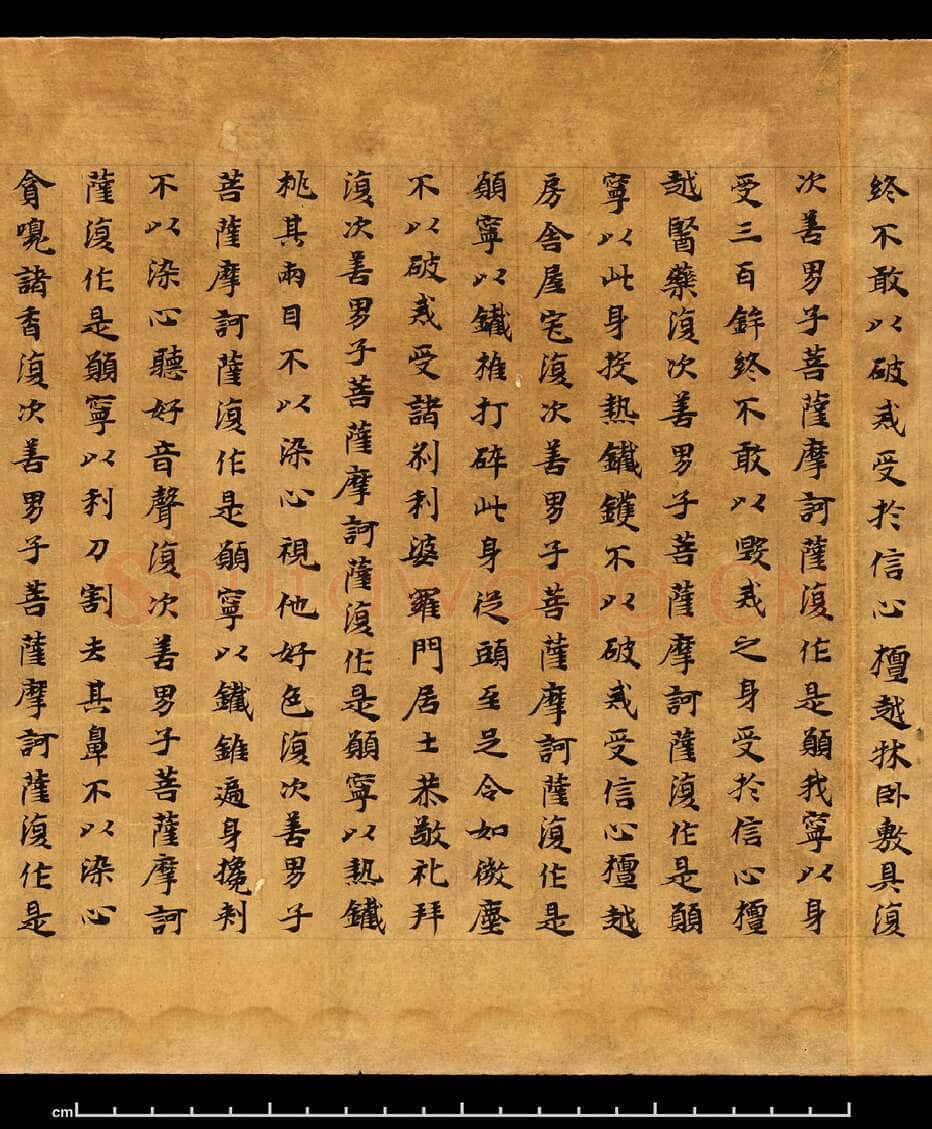 終不敢以破戒受於信心檀越牀卧敷具復
次善男子菩薩摩訶薩復作是願我寧以身
受三百鉾終不敢以毀戒之身受於信心檀
越醫藥復次善男子菩薩摩訶薩復作是願
寧以此身投熱鐵鑊不以破戒受信心檀越
房舍屋宅復次善男子菩薩摩訶薩復作是
願寧以鐵椎打碎此身從頭至足令如微塵
不以破戒受諸刹利婆羅門居士恭敬礼拜
復次善男子菩薩摩訶薩復作是願寧以熱鐵
挑其兩目不以染心視他好色復次善男子
菩薩摩訶薩復作是願寧以鐵錐遍身攙刺
不以染心聽好音聲復次善男子菩薩摩訶
薩復作是願寧以利刀割去其鼻不以染心
貪嗅諸香復次善男子菩薩摩訶薩復作是
Shufawang.cn
cm